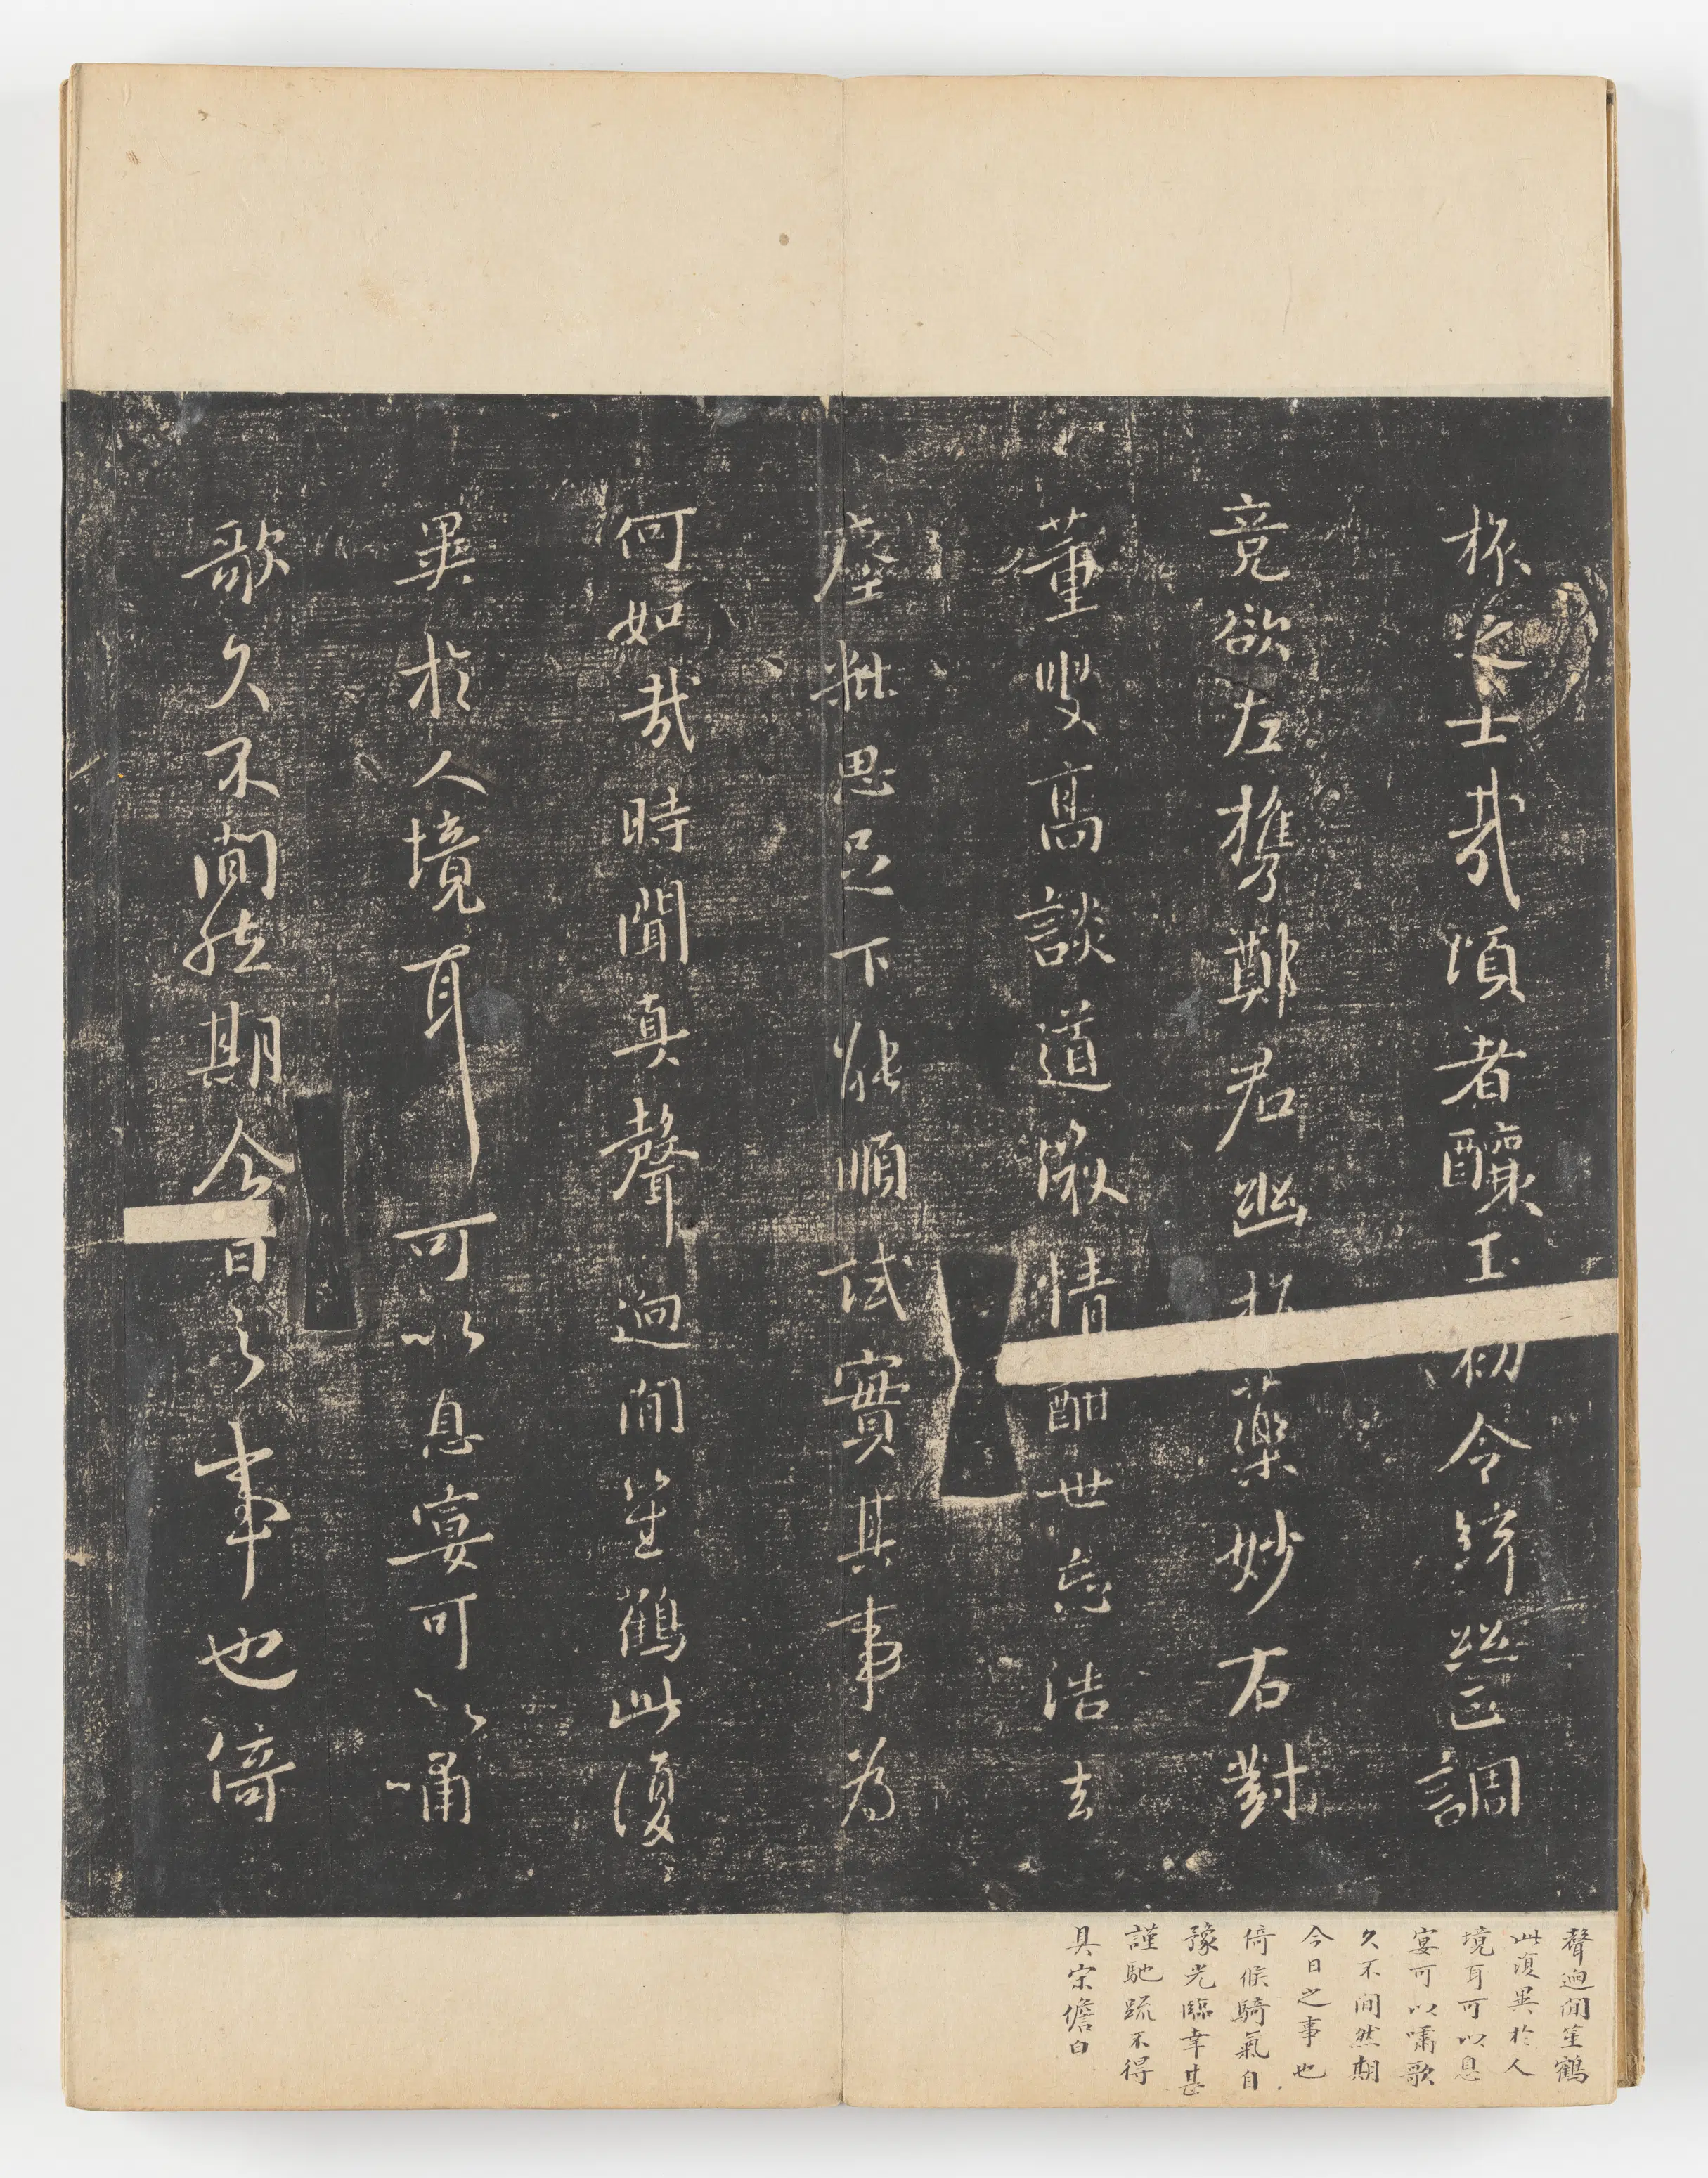 士哉頃者釀玉初令絲匹調
竟欲左攜鄭君幽藥妙右對
董叟高談道微情酣世忘浩去
塵粃思足下能順試實其事為
何如哉時聞真聲迥間笙鶴此復
異於人境耳可以息宴可以嘯
歌久不間然期今日之事也倚
聲迥間笙鶴
此復異於人
境耳可以息
宴可以嘯歌
久不間然期
今日之事也
倚候騎氣自
豫光臨幸甚
謹馳疏不得
具宗儋白